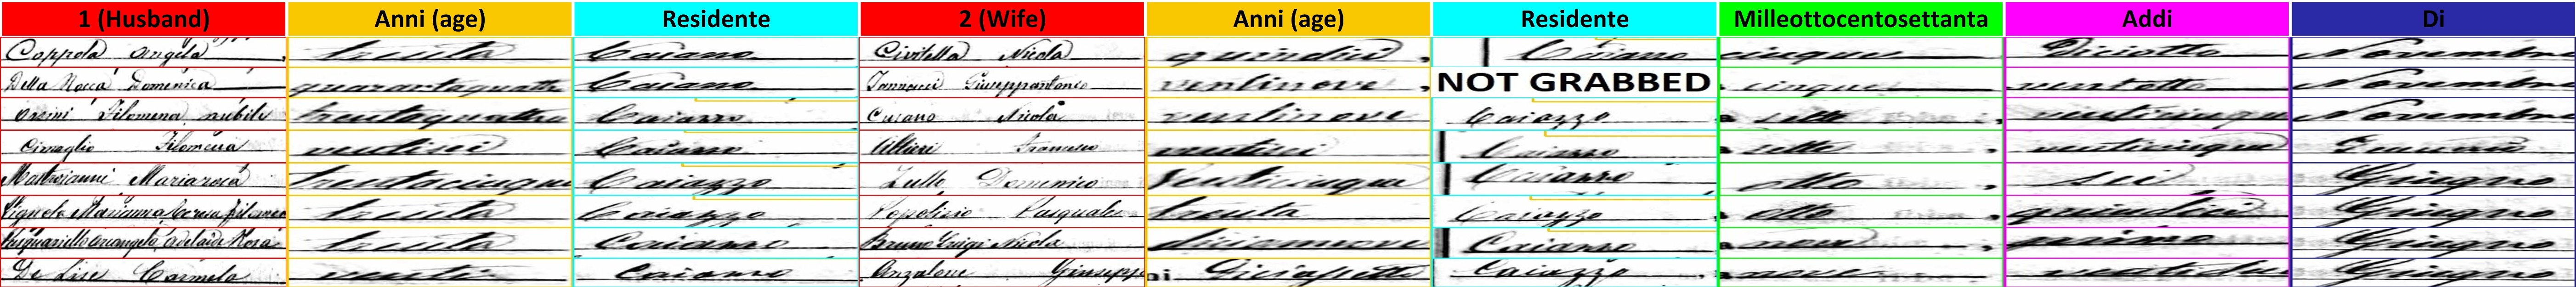 1 (Husband) Anni (age) Residente 2 (Wife) Anni (age) Residente Milleottocentosettanta Addi Di
Coppola Angela trenta Caiazzo Civitella Nicola quindici Caiazzo cinque Diciotto Novembre
Della Rocca Domenica quarantaquattro Caiazzo Giuseppantonio ventinove NOT GRABBED cinque ventotto Novembre
Orsini Filomena nubile trentaquattro Caiazzo Cusano Nicola ventinove Caiazzo sette venticinque Novembre
Filomena ventisei Caiazzo Francesco Caiazzo sette venticinque
Mastroianni Mariarosa trentacinque Caiazzo Zullo Domenico venticinque Caiazzo otto sei Giugno
Marianna Teresa Filomena trenta Caiazzo Pasquale trenta Caiazzo otto quindici Giugno
Arcangela Adelaide Rosa trenta Caiazzo Bruno Luigi Nicola diciannove Caiazzo nove primo Giugno
De Lise Carmela venti Caiazzo Anzalone Giuseppe Diciassette Caiazzo nove ventidue Giugno